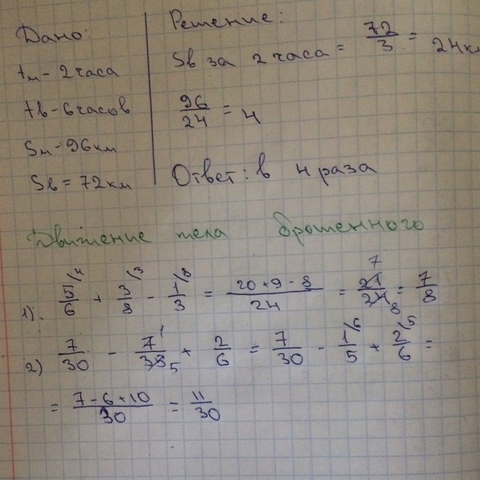 Дано:
tм - 2 часа
tв - 6 часов
Sм - 96 км
Sв = 72 км
Решение:
Sв за 2 часа = 72/3 = 24 км
96/24 = 4
Ответ: в 4 раза
Движение тела брошенного
1). 5/6 \4 + 3/8 \3 - 1/3 \8 = 20 + 9 - 8/24 = 21/24 7 8 = 7/8
2) 7/30 - 7/35 1 5 + 2/6 = 7/30 - 1/5 \6 + 2/6 \5 =
= 7 - 6 + 10/30 = 11/30